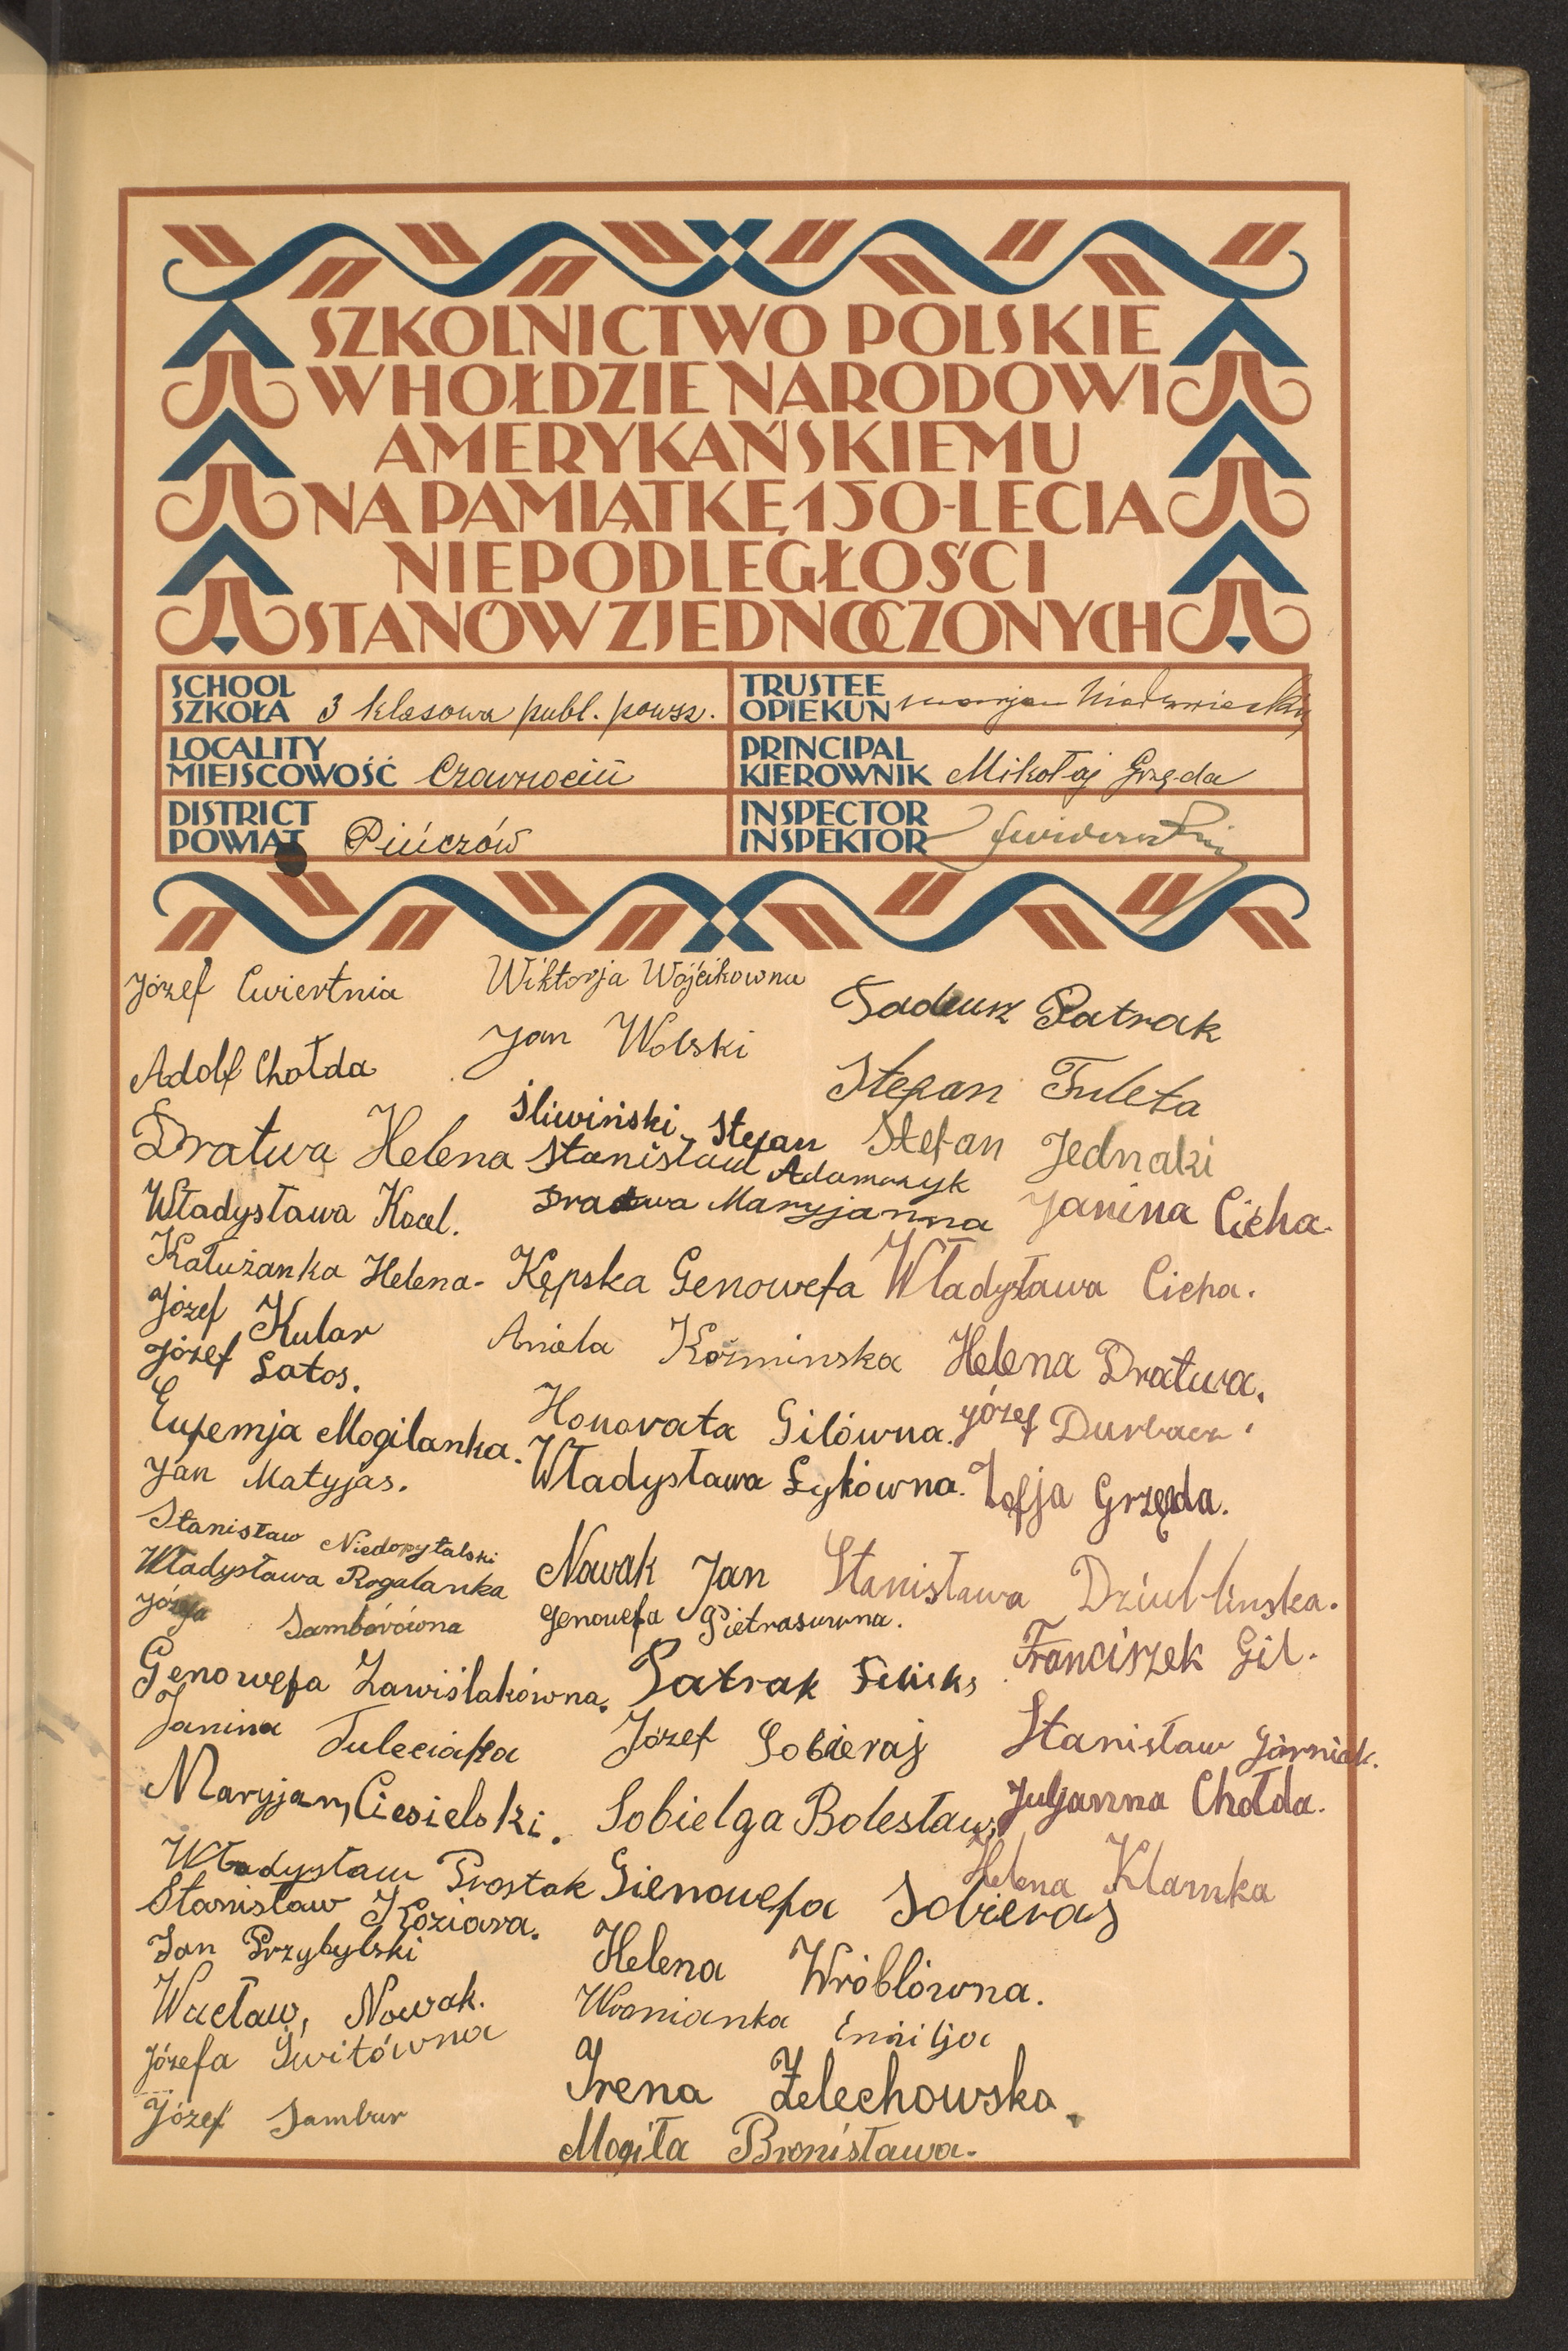 SZKOLNICTWO POLSKIE
W HOŁDZIE NARODOWI
AMERYKAŃSKIEMU
NA PAMIĄTKĘ 150-LECIA
NIEPODLEGŁOŚCI
STANÓW ZJEDNOCZONYCH
SCHOOL
SZKOŁA 3 klasowa publ. powsz.
TRUSTEE
OPIEKUN
LOCALITY
MIEJSCOWOŚĆ
PRINCIPAL
KIEROWNIK Mikołaj Grzęda
DISTRICT
POWIAT Pińczów
INSPECTOR
INSPEKTOR
Józef Cwiertnia
Adolf Chołda
Dratwa Helena
Władysława Kocel.
Kałużanka Helena-
Józef Kular
Józef Latos.
Eufemja Mogilanka.
Jan Matyjas.
Stanisław Niedopytalski
Władysława Rogalanka
Józefa Samborówna
Genowefa Zawiślakówna.
Janina Tuleciapa
Maryjan, Ciesielski.
Władysław Prostak
Stanisław Koziara.
Jan Przybylski
Wacław, Nowak.
Józefa Switówna
Józef Sambur
Wiktorja Wójcikowna
Jan Wolski
Śliwiński Stefan
Stanisław Adamczyk
Dratwa Maryjanna
Kępska Genowefa
Aniela Kozminska
Honorata Gilówna.
Władysława Łykówna.
Nowak Jan
Genowefa Pietrasuwna.
Patrak Feliks
Józef Sobieraj
Sobielga Bolesław,
Gienowefa Sobieraj
Helena Wróblówna.
Wronianka Emilja
Irena Żelechowska.
Mogiła Bronisława.
Tadeusz Patrak
Stefan Tuleta
Stefan Jednaki
Janina Cicha.
Władysława Cicha.
Helena Dratwa.
Józef Durbacz.
Zofja Grzęda.
Stanisława Dziublinska.
Franciszek Gil.
Stanisław Górniak.
Juljanna Chołda.
Helena Klamka